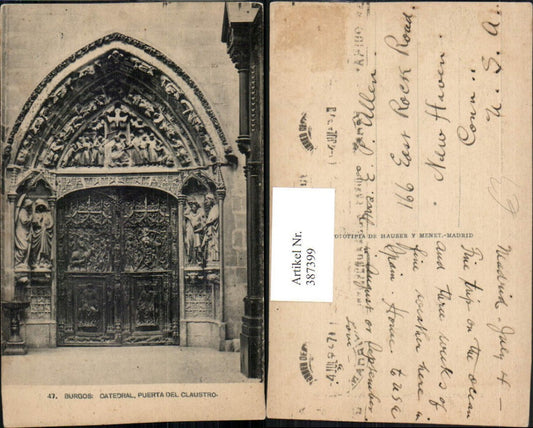 47. BURGOS: CATEDRAL, PUERTA DEL CLAUSTRO.
Artikel Nr.
387399
FOTOTIPIA DE HAUSER Y MENET.-MADRID
Mrs. E. P. Allen
166 East Rock Road.
New Haven.
Conn..
U. S. A.
Madrid July 4 —
Fine trip on the ocean
and three weeks of
fine weather here in
Spain. Home to use
in August or September.